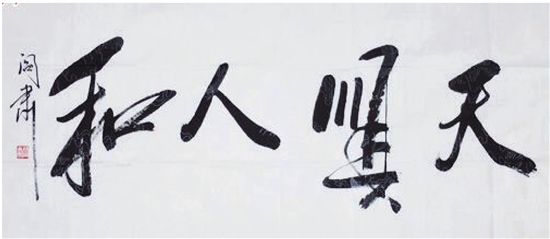 天顺人和
阎肃